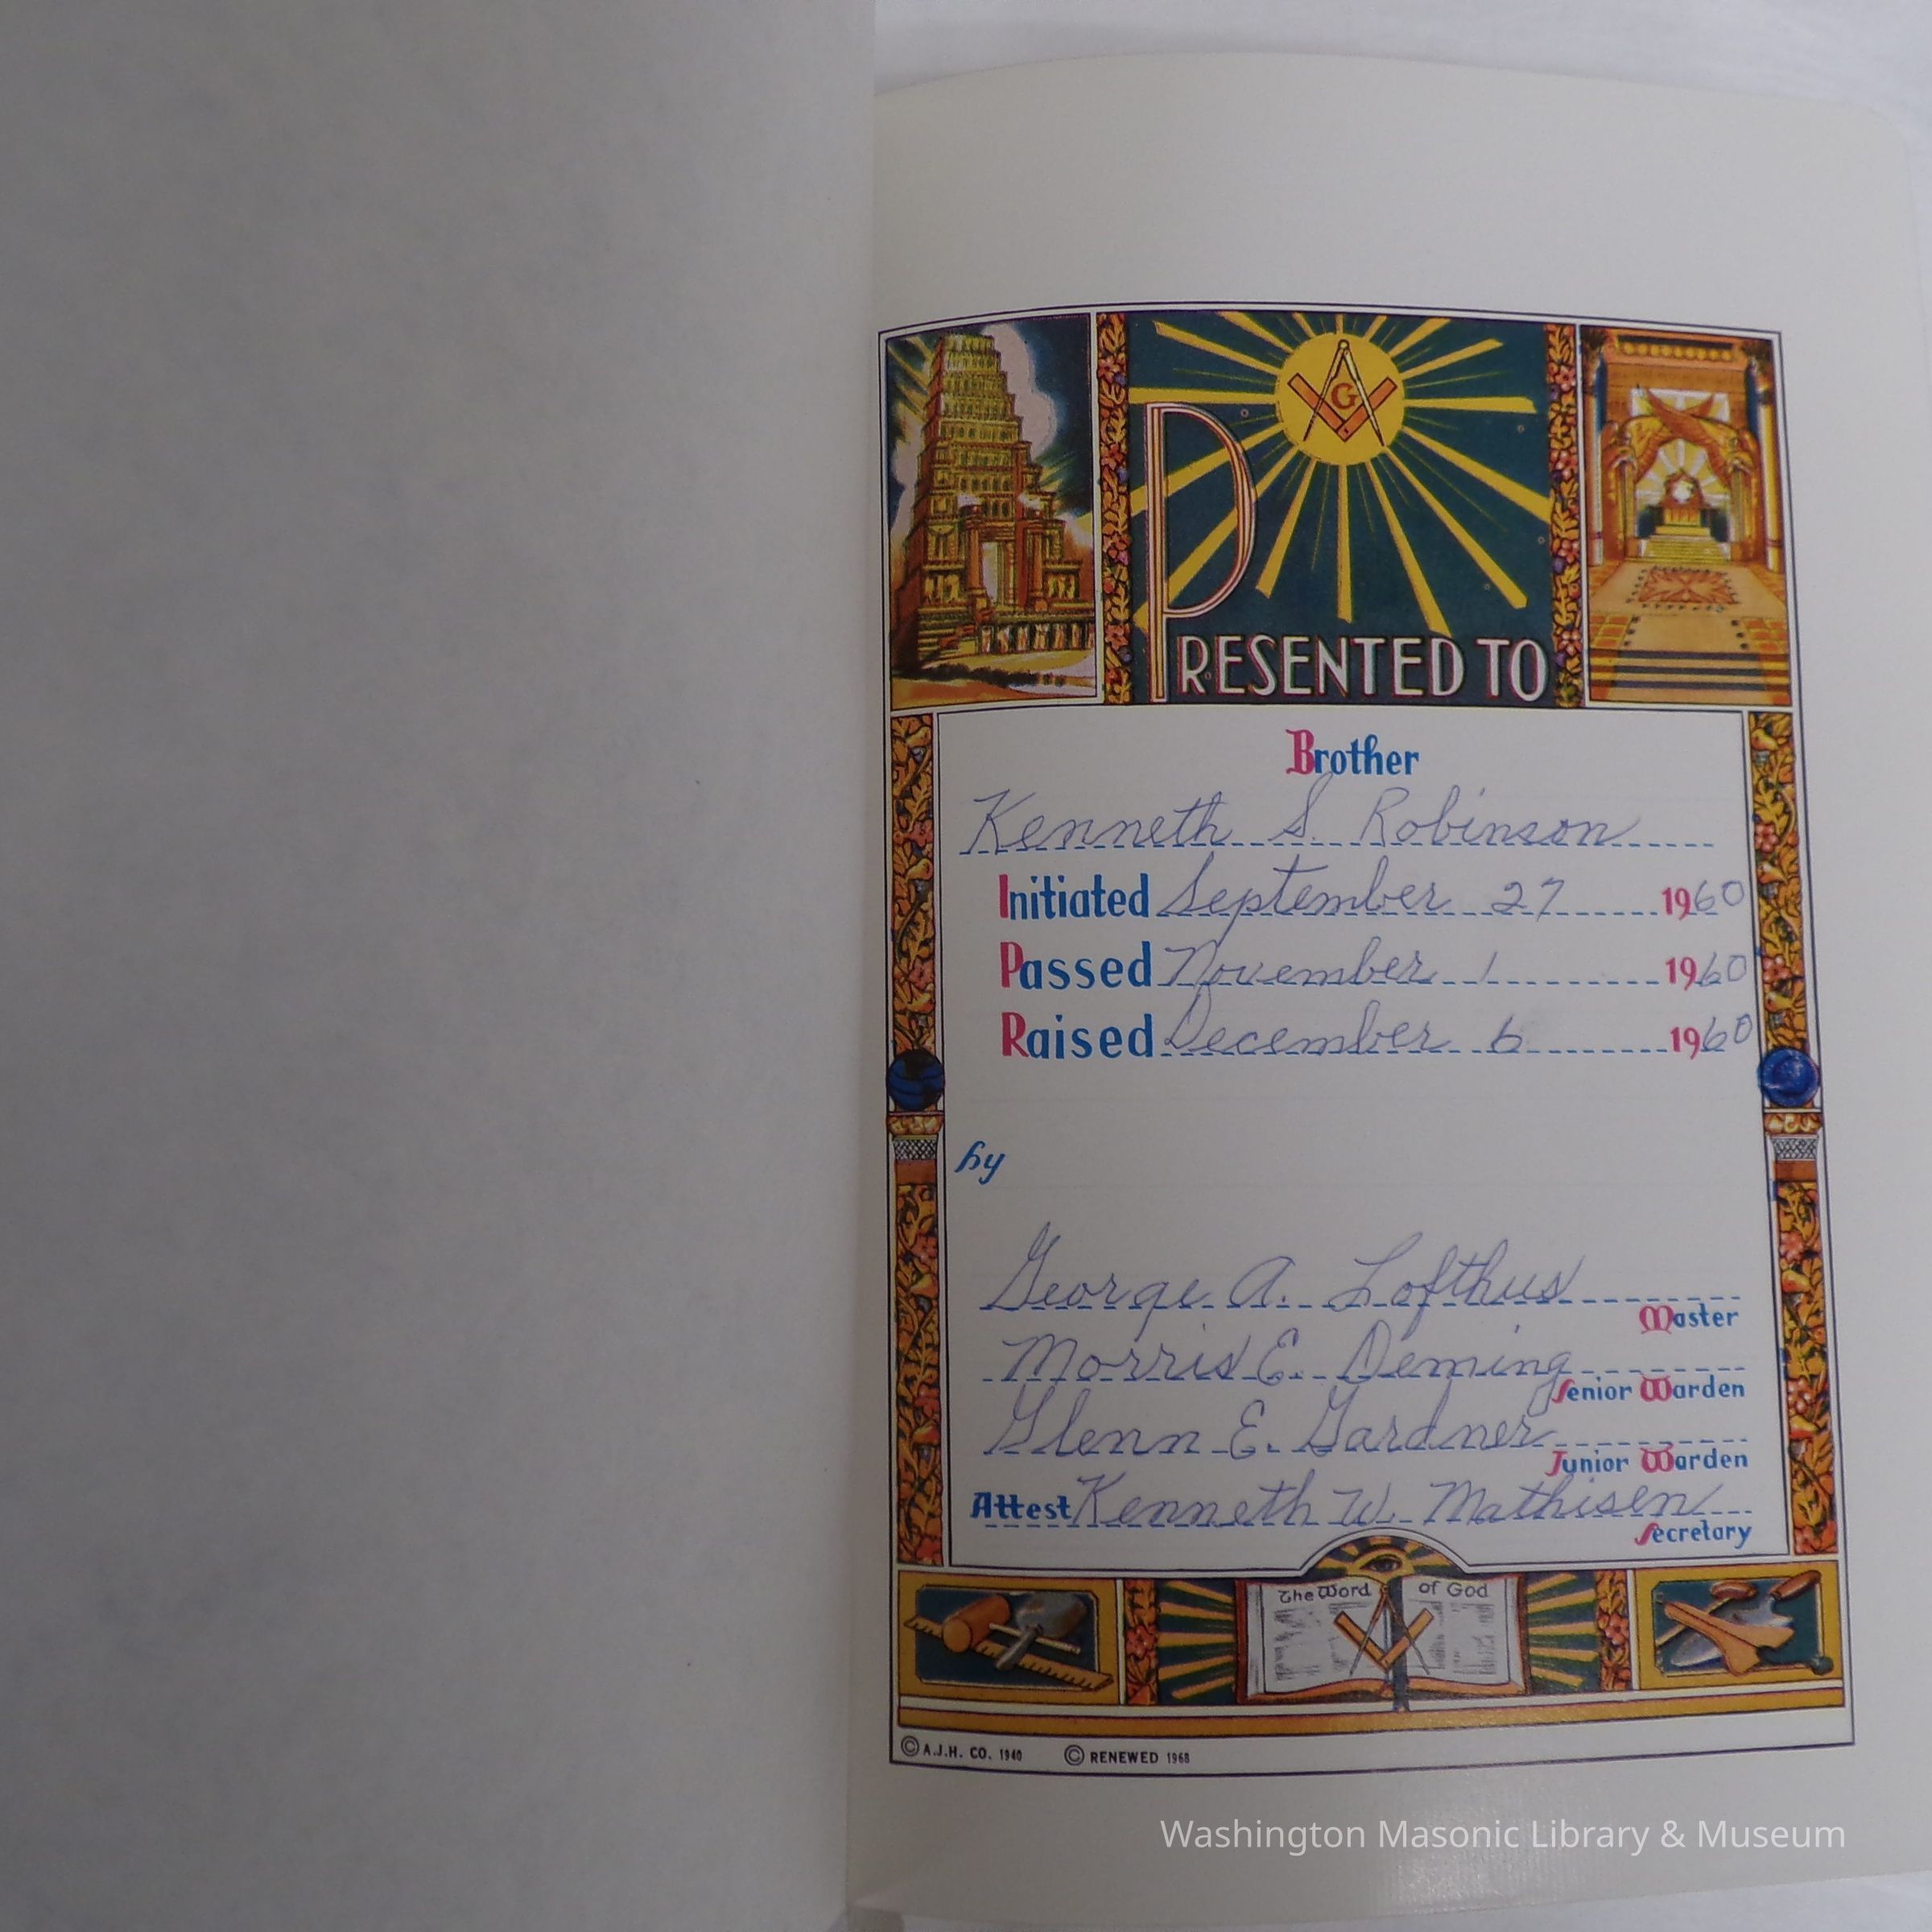 G
PRESENTED TO
Brother
Kenneth S. Robinson
Initiated September 27 1960
Passed November 1 1960
Raised December 6 1960
by
George A. Lofthus
Master
Morris E. Deming
Senior Warden
Glenn E. Gardner
Junior Warden
Attest Kenneth W. Mathisen
Secretary
The Word of God
© A.J.H. CO. 1940 © RENEWED 1968
Washington Masonic Library & Museum